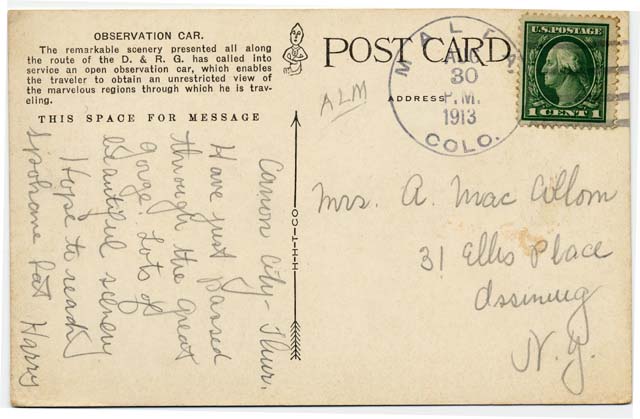 OBSERVATION CAR.
The remarkable scenery presented all along
the route of the D. & R. G. has called into
service an open observation car, which enables
the traveler to obtain an unrestricted view of
the marvelous regions through which he is trav-
eling.
THIS SPACE FOR MESSAGE
Canon City - Thur.
Have just passed
through the great
gorge. Lots of
beautiful scenery
Hope to reach
Spokane Sat Harry
H-H-T-CO
POST CARD
ALM
ADDRESS
MALTA
AUG
30
P.M.
1913
COLO.
U.S. POSTAGE
1 CENT 1
Mrs. A. Mac Collom
31 Ellis Place
Ossining
N.Y.